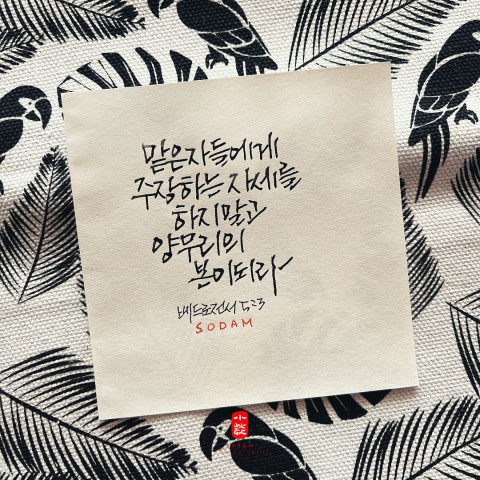 맡은자들에게
주장하는 자세를
하지말고
양무리의
본이되라
베드로전서 5:3
SODAM